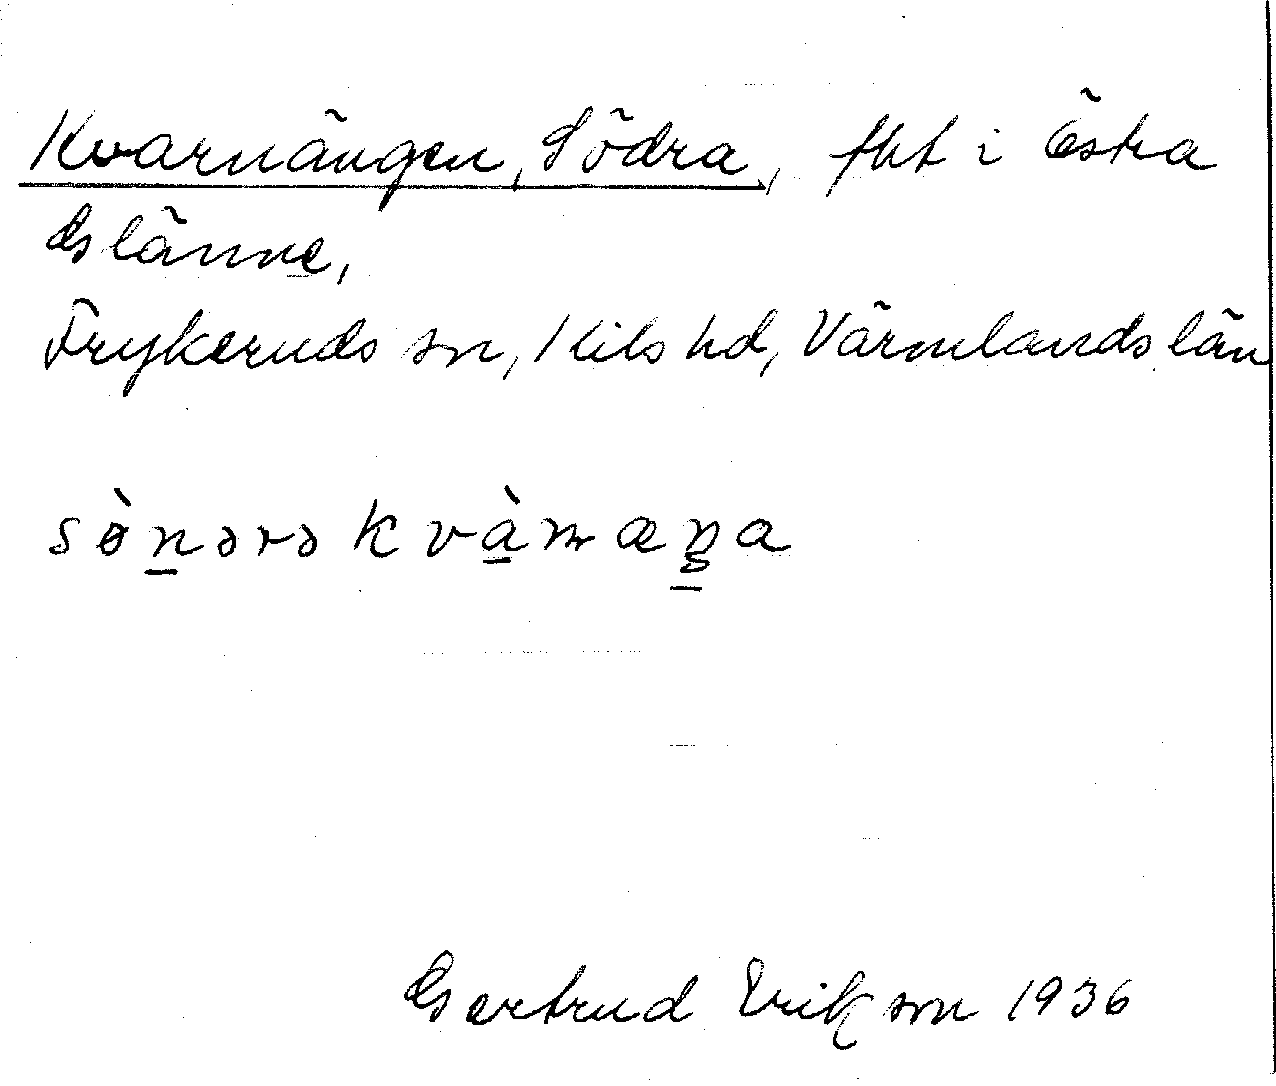 Kvarnängen, Södra, fht i Östra
Glänne,
Frykeruds sn, Kils hd, Värmlands län
sö̀nərə kvàɳæŋa
Gertrud Erikson 1936